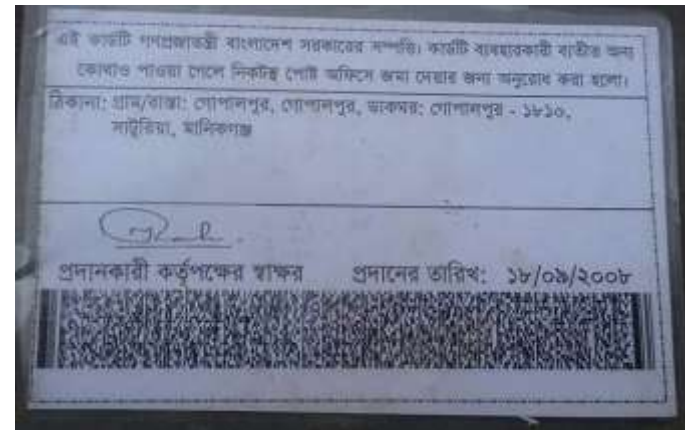 এই কার্ডটি গণপ্রজাতন্ত্রী বাংলাদেশ সরকারের সম্পত্তি। কার্ডটি ব্যবহারকারী ব্যতীত অন্য
কোথাও পাওয়া গেলে নিকটস্থ পোস্ট অফিসে জমা দেয়ার জন্য অনুরোধ করা হলো।
ঠিকানা: গ্রাম/রাস্তা: গোপালপুর, গোপালপুর, ডাকঘর: গোপালপুর - ১৮১০,
সাটুরিয়া, মানিকগঞ্জ
প্রদানকারী কর্তৃপক্ষের স্বাক্ষর প্রদানের তারিখ: ১৮/০৯/২০০৮